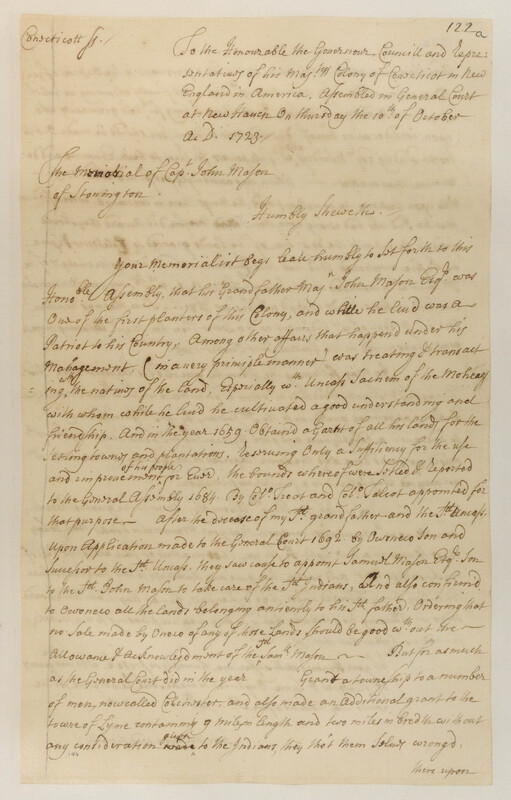 122a
Conecticott ss./
To the Honourable the Governour Councill and Repre=
sentatives of his Majtys Colony of Conecticot in New
England in America. Assembled in General Court
at New Haven On thursday the 10th of October
A.D. 1723./
The Memorial of Capt John Mason
of Stonington
Humbly Sheweth./
Your Memorialist Begs leave humbly to Set forth to this
Honoble Assembly, that his Grandfather Majr John Mason Esqr was
One of the first planters of this Colony, and while he livd was a
Patriot to his Country, Among other affairs that happend under his
Management, (in a very principle manner) was treating & transact
ing wth the natives of the land, Especially wth Uncass Sachem of the Moheags
with whom while he livd he cultivated a good understanding and
friendship. And in the year 1659 Obtaind a Grant of all his land for the
Setling townes and plantations, Reserving Only a Suffitiency for the use
and improvement of his people for Ever, the bounds whereof were Setled & Reported
to the General Assembly 1684 By Colo Treat and Colo Talcot appointed for
that purpose — After the decease of my sd grandfather and the sd Uncass
Upon Application made to the General Court 1692 By Owoneco Son and
Successor to the sd Uncass, they saw cause to appoint Samuel Mason Esqr Son
to the sd John Mason to take care of the sd Indians, And also confirmd
to Owoneco all the lands belonging anciently to his sd father, Ordering that
no Sale made by Oneco of any of those Lands Should be good wth out the
Allowance & Acknowledgment of the sd Samll Mason — But for as much
as the General Court did in the year Grant a township to a number
of men, now called Colchester, and also made an Additional grant to the
towne of Lyme containing 9 miles in length and two miles in bredth without
any consideration given to the Indians, they tho't them Selves wrongd,
there upon